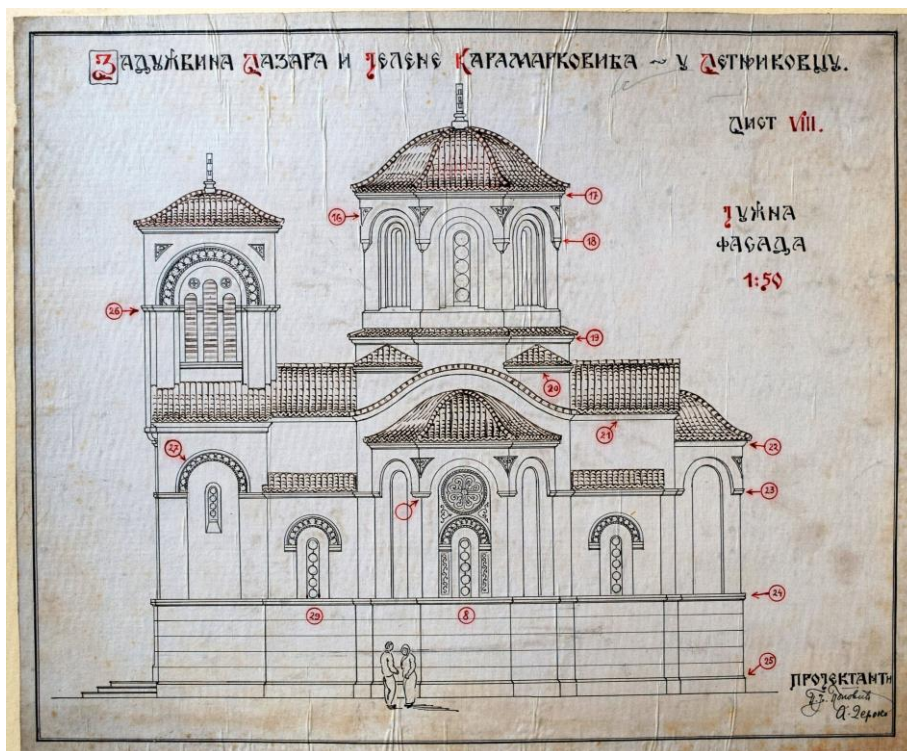 ЗАДУЖБИНА ЛАЗАРА И ЈЕЛЕНЕ КАРАМАРКОВИЋА ~ У ЛЕТЊИКОВЦУ.
ЛИСТ VIII.
ЈУЖНА
ФАСАДА
1:50
17
16
18
26
19
20
21
27
22
23
24
29
8
25
ПРОЈЕКТАНТИ
П. Ј. Поповић
А. Дероко